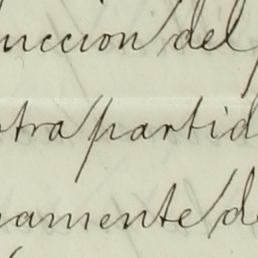 uccion del
otra partid
amente de